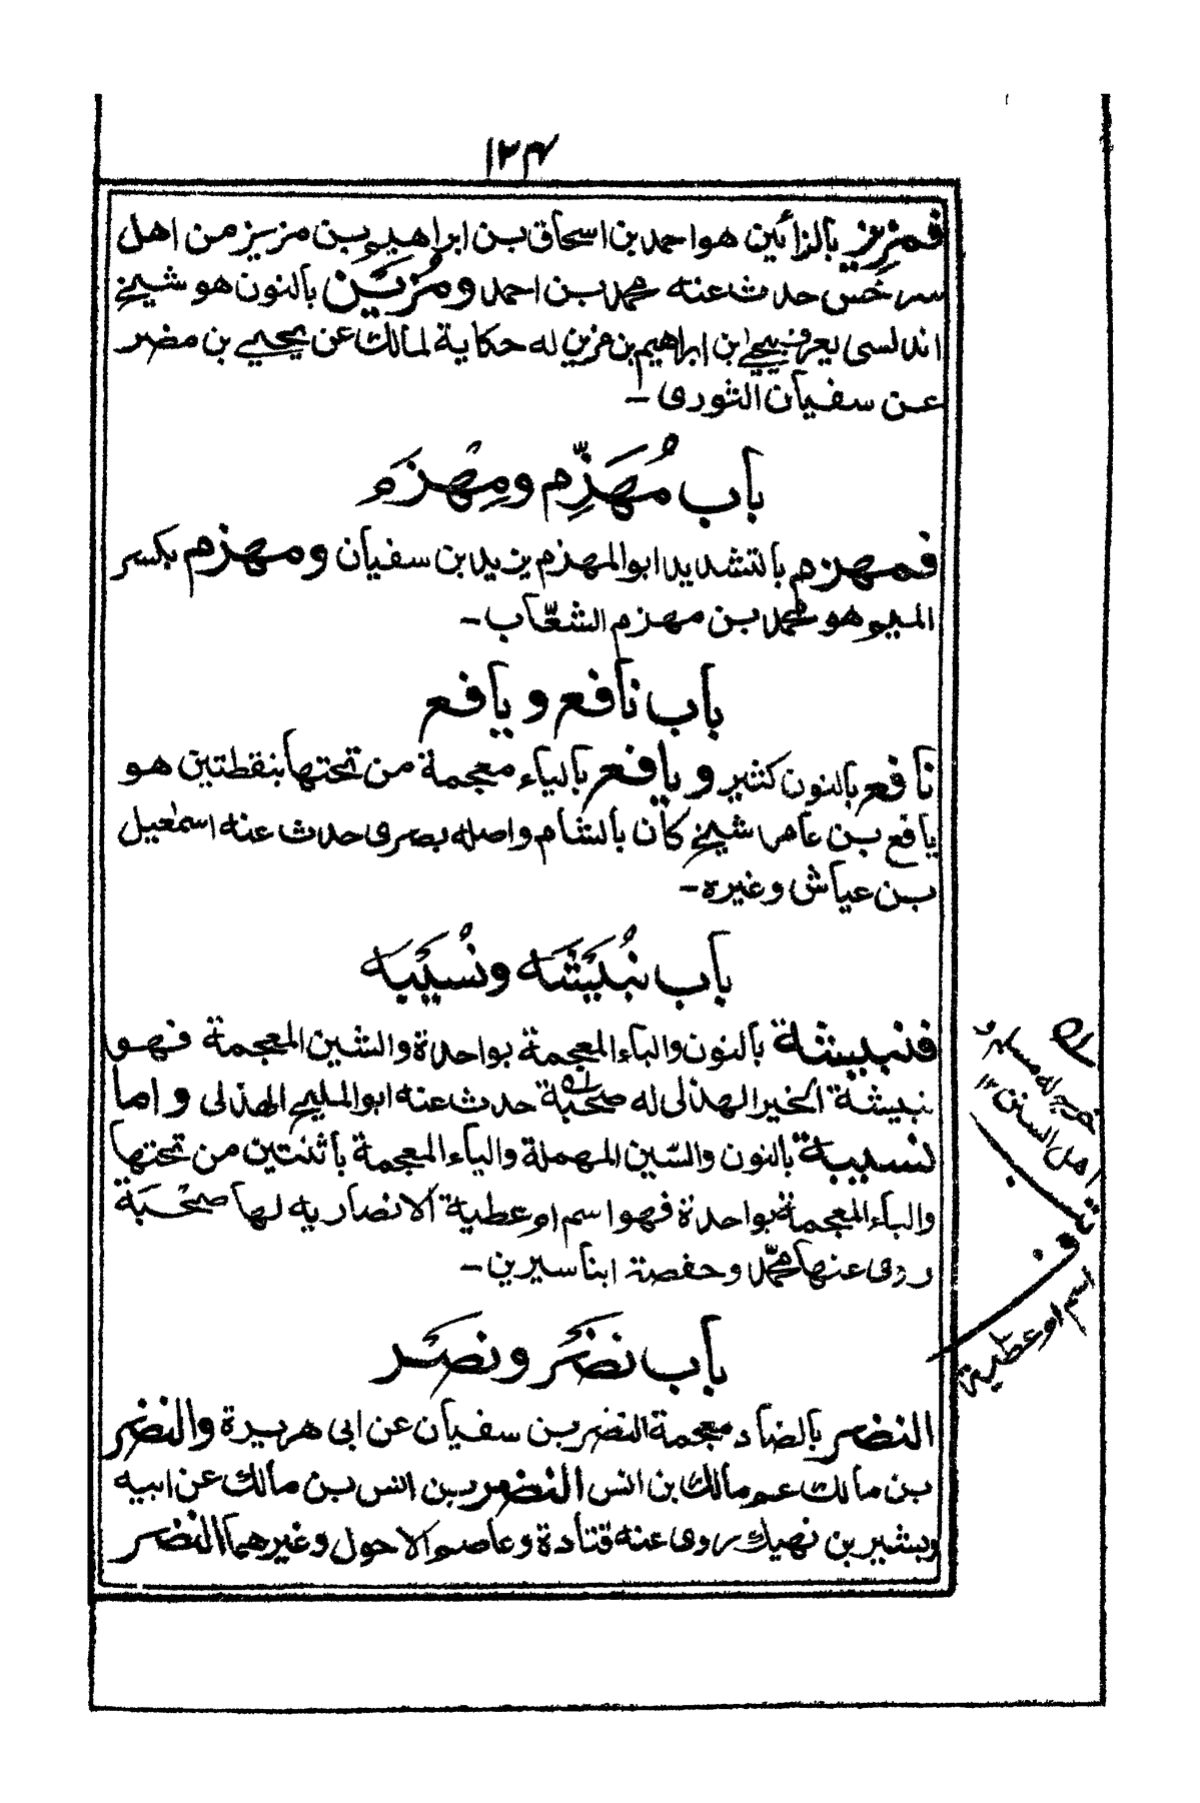 ١٢٤
فمزيز بالزائين هو احمد بن اسحاق بن ابراهيم بن مزيز من اهل
سرخس حدث عنه محمد بن احمد ومُزَيْن بالنون هو شيخ
اندلسى يعرف بيحيى ابن ابراهيم بن مزين له حكاية لمالك عن يحيى بن مضر
عن سفيان الثورى -
باب مُهَزِّم ومِهْزَم
فمهزم بالتشديد ابو المهزم يزيد بن سفيان ومهزم بكسر
الميم هو محمد بن مهزم الشعّاب -
باب نافع ويافع
نافع بالنون كثير ويافع بالياء معجمة من تحتها بنقطتين هو
يافع بن عامر شيخ كان بالشام واصله بصرى حدث عنه اسمٰعيل
بن عياش وغيره -
باب نُبَيْشَه ونُسَيْبَه
فنبيشة بالنون والباء المعجمة بواحدة والشين المعجمة فهو
نبيشة الخير الهذلى له صحبة حدث عنه ابو المليح الهذلى واما
نسيبة بالنون والسّين المهملة والياء المعجمة باثنتين من تحتها
والباء المعجمة بواحدة فهو اسم ام عطية الانصاريه لها صُحْبَة
روى عنها محمّد وحفصة ابنا سيرين -
باب نضْر ونصْر
النضر بالضاد معجمة النضر بن سفيان عن ابى هريرة والنضر
بن مالك عم مالك بن انس النضر بن انس بن مالك عن ابيه
وبشير بن نهيك روى عنه قتادة وعاصم الاحول وغيرهما النضر
خرج له مسلم و
اهل السنن ١٢
ف
اسم ام عطية